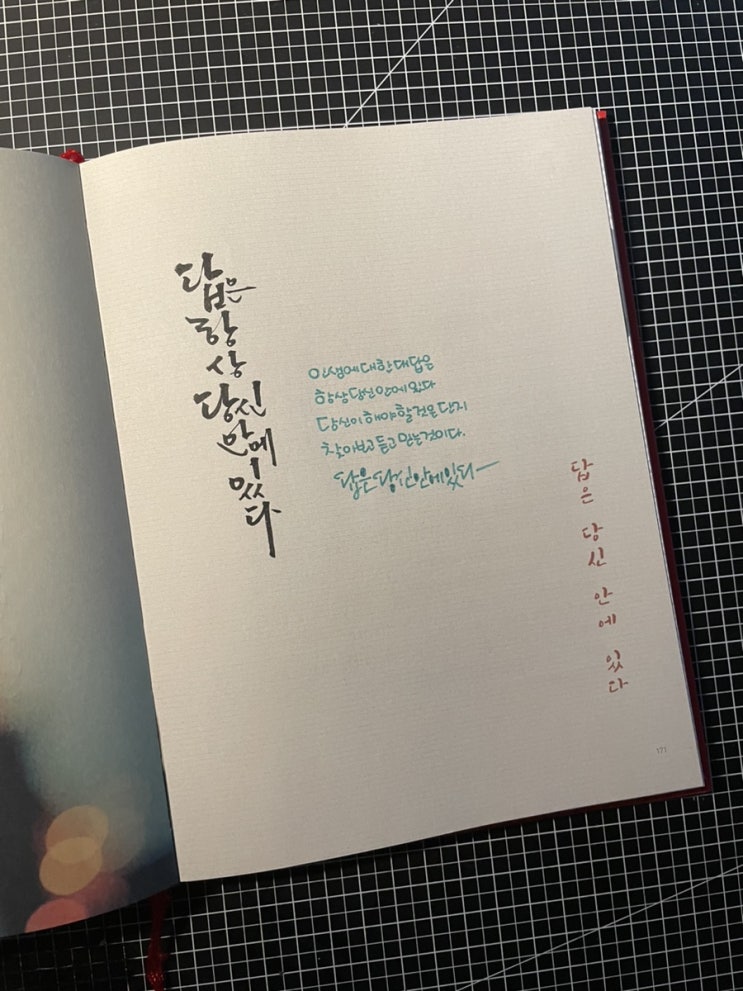 답은
항
상
당신
안에
있
다
인생에 대한 대답은
항상 당신 안에 있다
당신이 해야 할 것은 단지
찾아보고 듣고 믿는 것이다.
답은 당신 안에 있다
답
은
당
신
안
에
있
다
171